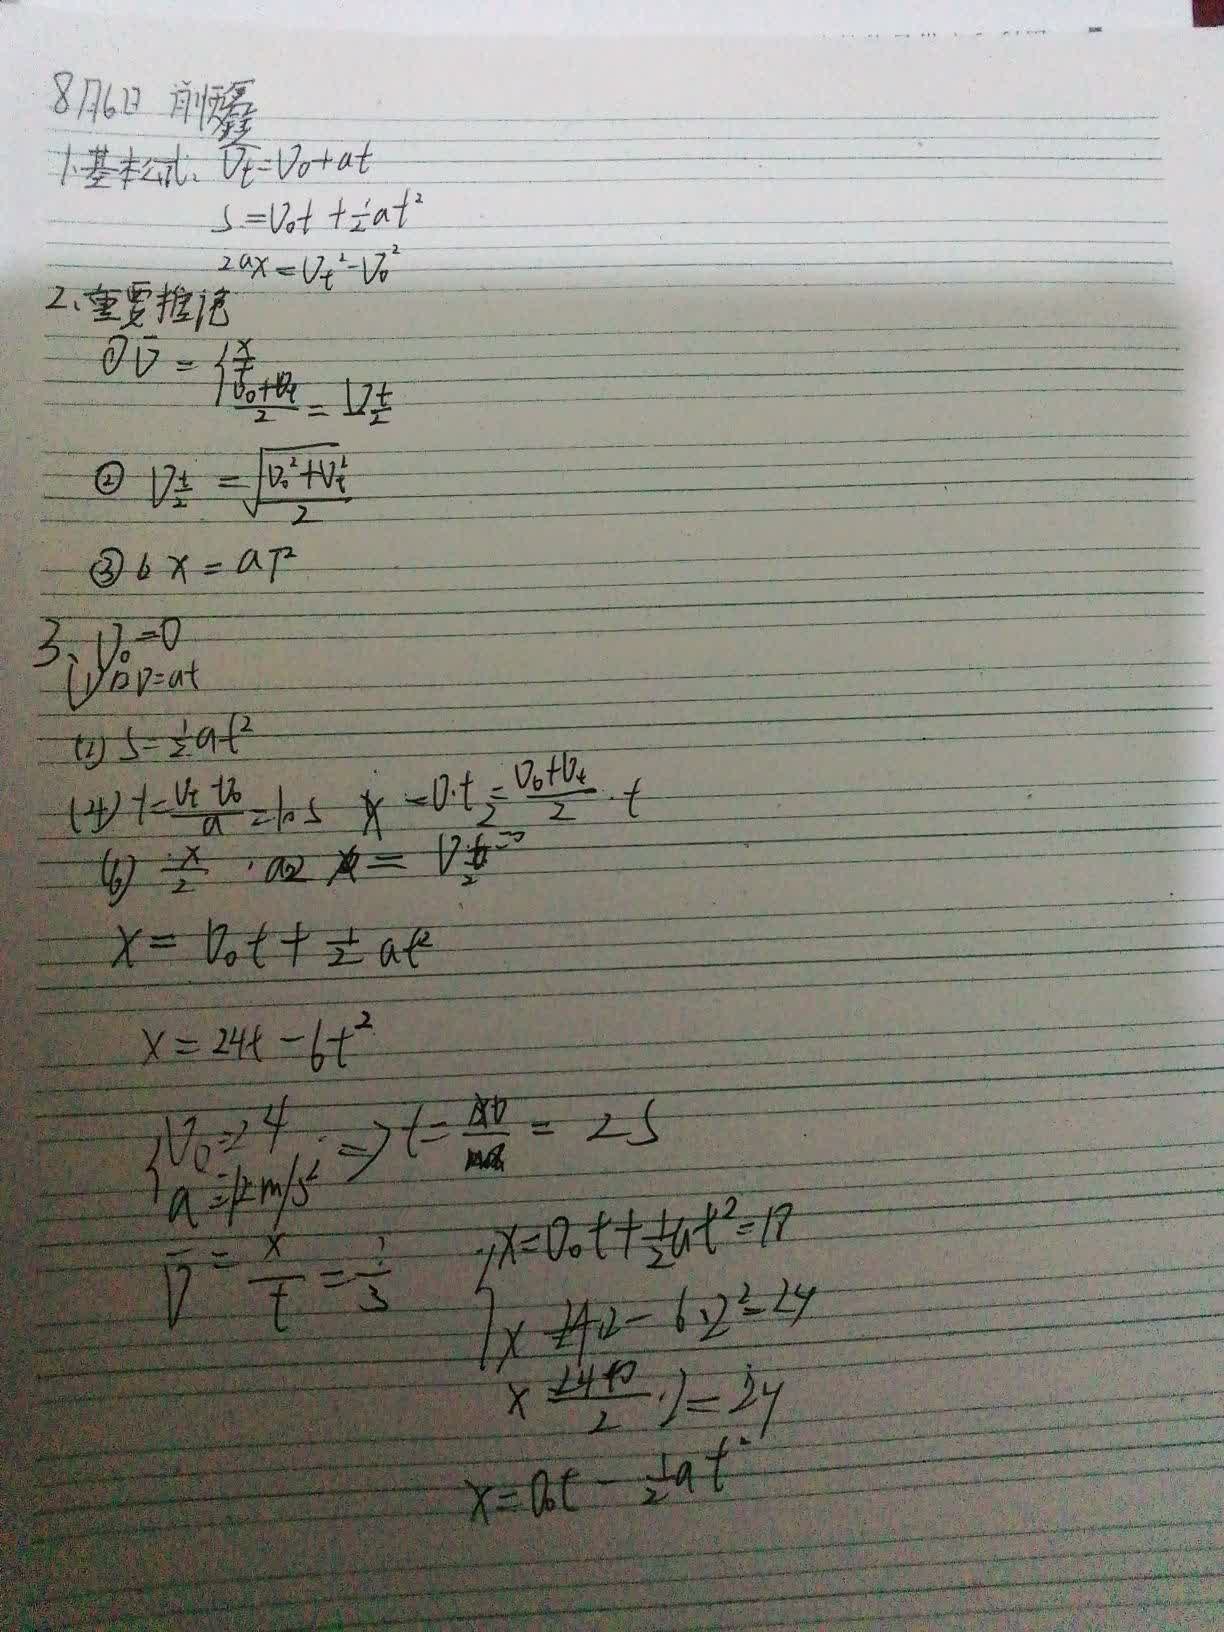 8月6日
1、基本公式、Vt=V0+at
S=V0t+½at²
2ax=Vt²-V0²
2、重要推论
① V̄ = { x/t
(V0+Vt)/2 = V t/2
② V t/2 = √((V0²+Vt²)/2)
③ 6 x = aT²
3、V0=0
(1) V=at
(2) S=½at²
(4) t=(Vt-V0)/a=10s x=V·t/2=(V0+Vt)/2·t
(6) x/2 = V t/2
x=V0t+½at²
x=24t-6t²
V0=24
a=12m/s² => t= = 2S
V̄=x/t=1/3
x=V0t+½at²=
x=24·2-6·2²=24
x=(24+0)/2·2=24
x=V0t-½at²